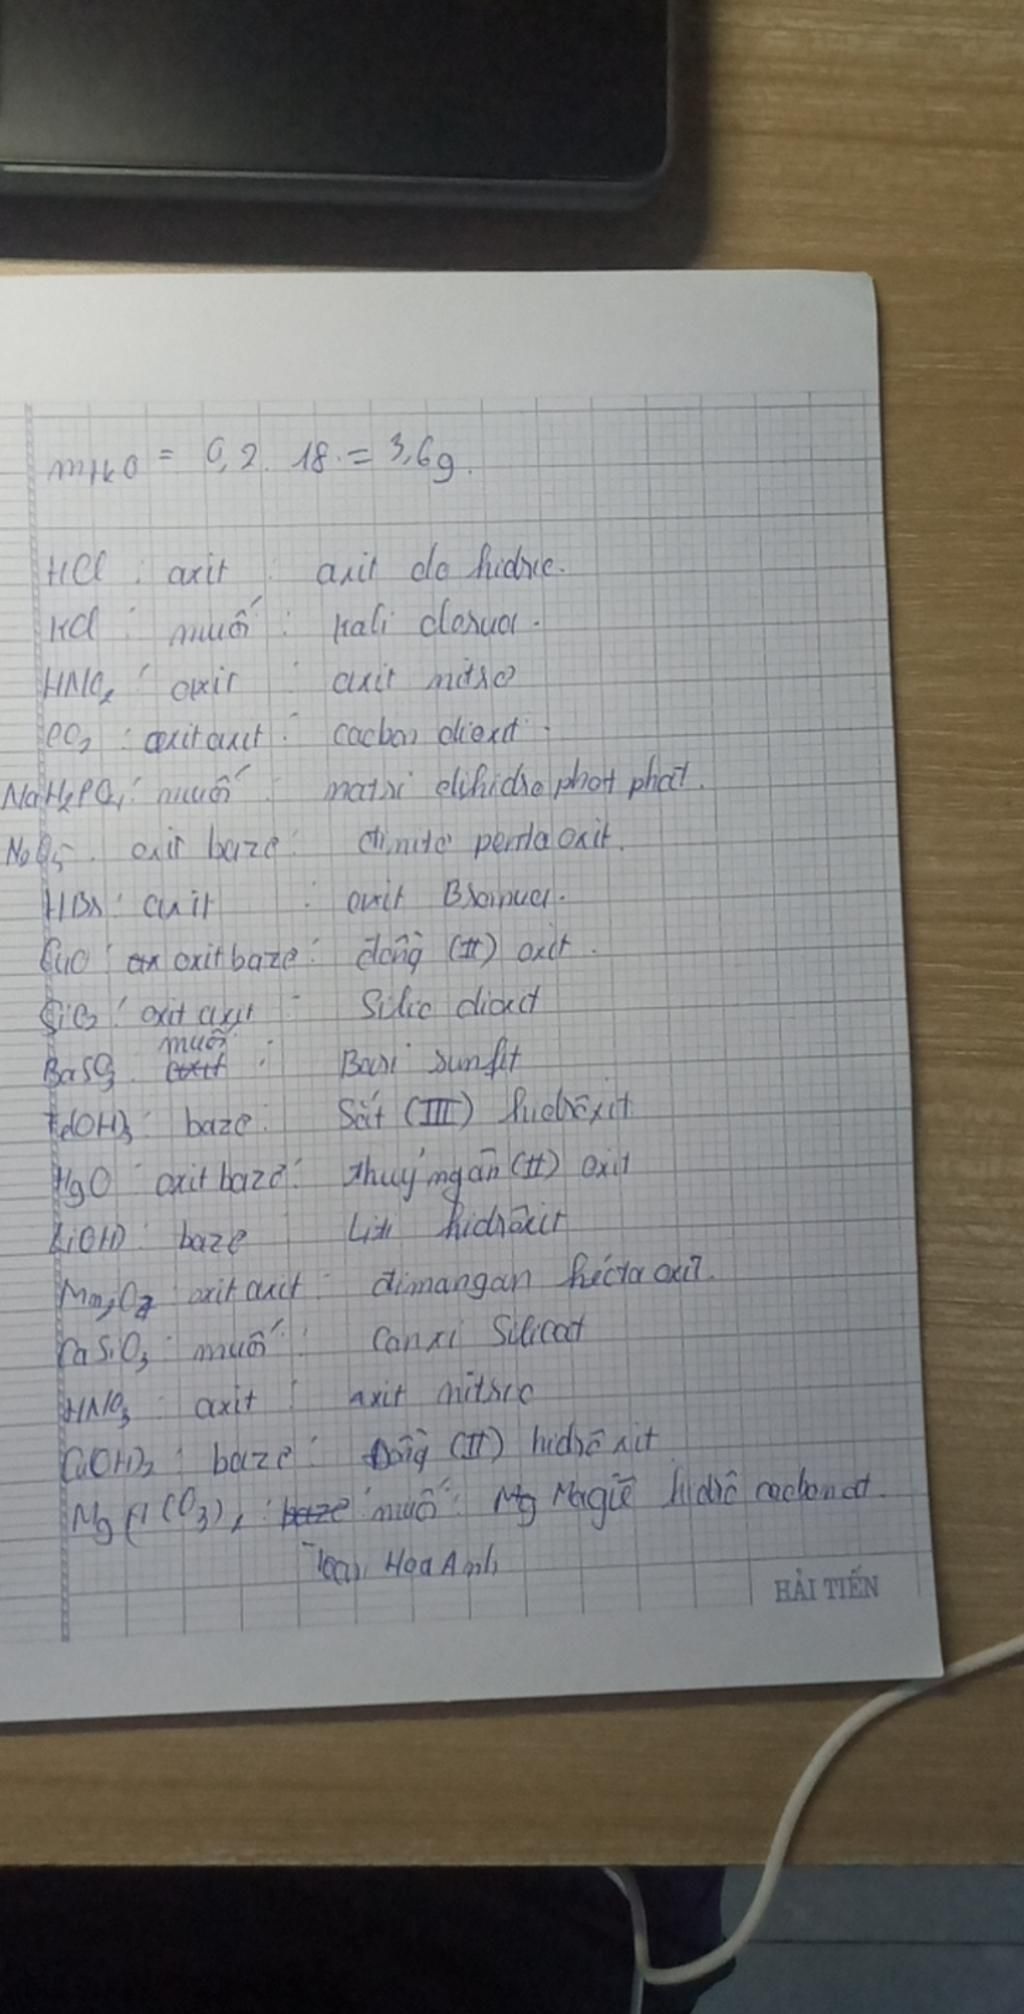 mH₂O = 0,2. 18. = 3,6g.
HCl : axit : axit clo hidric.
KCl : muố : kali clorua.
HNO₂ : axit : axit nitrơ
CO₂ : oxit axit : cacbon dioxit.
NaH₂PO₄ : muố : natri đihidro phot phat.
N₂O₅ . oxit baze : đinitơ penta oxit.
HBr : axit : axit Bromua.
CuO : oxit baze : đồng (II) oxit.
SiO₂ : oxit axit : Silic dioxit
BaSO₃ muố : Bari sunfit
Fe(OH)₃ : baze : Sắt (III) hidrôxit
HgO : oxit baze : thuỷ ngân (II) oxit
LiOH : baze Liti hidrôxit
Mn₂O₇ : oxit axit : đimangan hécta oxit.
CaSiO₃ : muố : Canxi Silicat
HNO₃ : axit : axit nitric
Cu(OH)₂ : baze : Đồng (II) hidrô xit
Mg(HCO₃)₂ : muố : Magiê hidrô cacbonat.
Hoa Anh
HẢI TIẾN